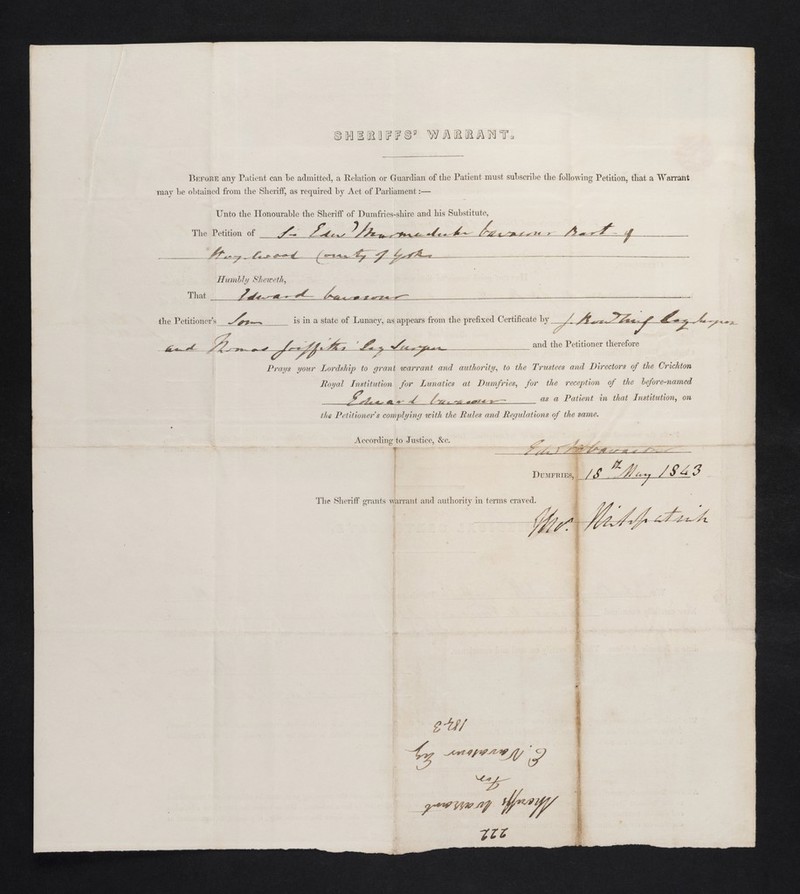 SHERIFFS' WARRANT.
BEFORE any Patient can be admitted, a Relation or Guardian of the Patient must subscribe the following Petition, that a Warrant
may be obtained from the Sheriff, as required by Act of Parliament :—
Unto the Honourable the Sheriff of Dumfries-shire and his Substitute,
The Petition of Sir Edwd Marmaduke Vavasour Bart of
Hazlewood County of York
Humbly Sheweth,
That Edward Vavasour
the Petitioner's Son is in a state of Lunacy, as appears from the prefixed Certificate by J. Esq Surgeon
and Thomas Griffiths Esq Surgeon and the Petitioner therefore
Prays your Lordship to grant warrant and authority, to the Trustees and Directors of the Crichton
Royal Institution for Lunatics at Dumfries, for the reception of the before-named
Edward Vavasour as a Patient in that Institution, on
the Petitioner's complying with the Rules and Regulations of the same.
According to Justice, &c.
Edwd M Vavasour
DUMFRIES, 18th May 1843
The Sheriff grants warrant and authority in terms craved.
Thos. Kirkpatrick
222
Sheriffs Warrant
For
E. Vavasour Esq
1843